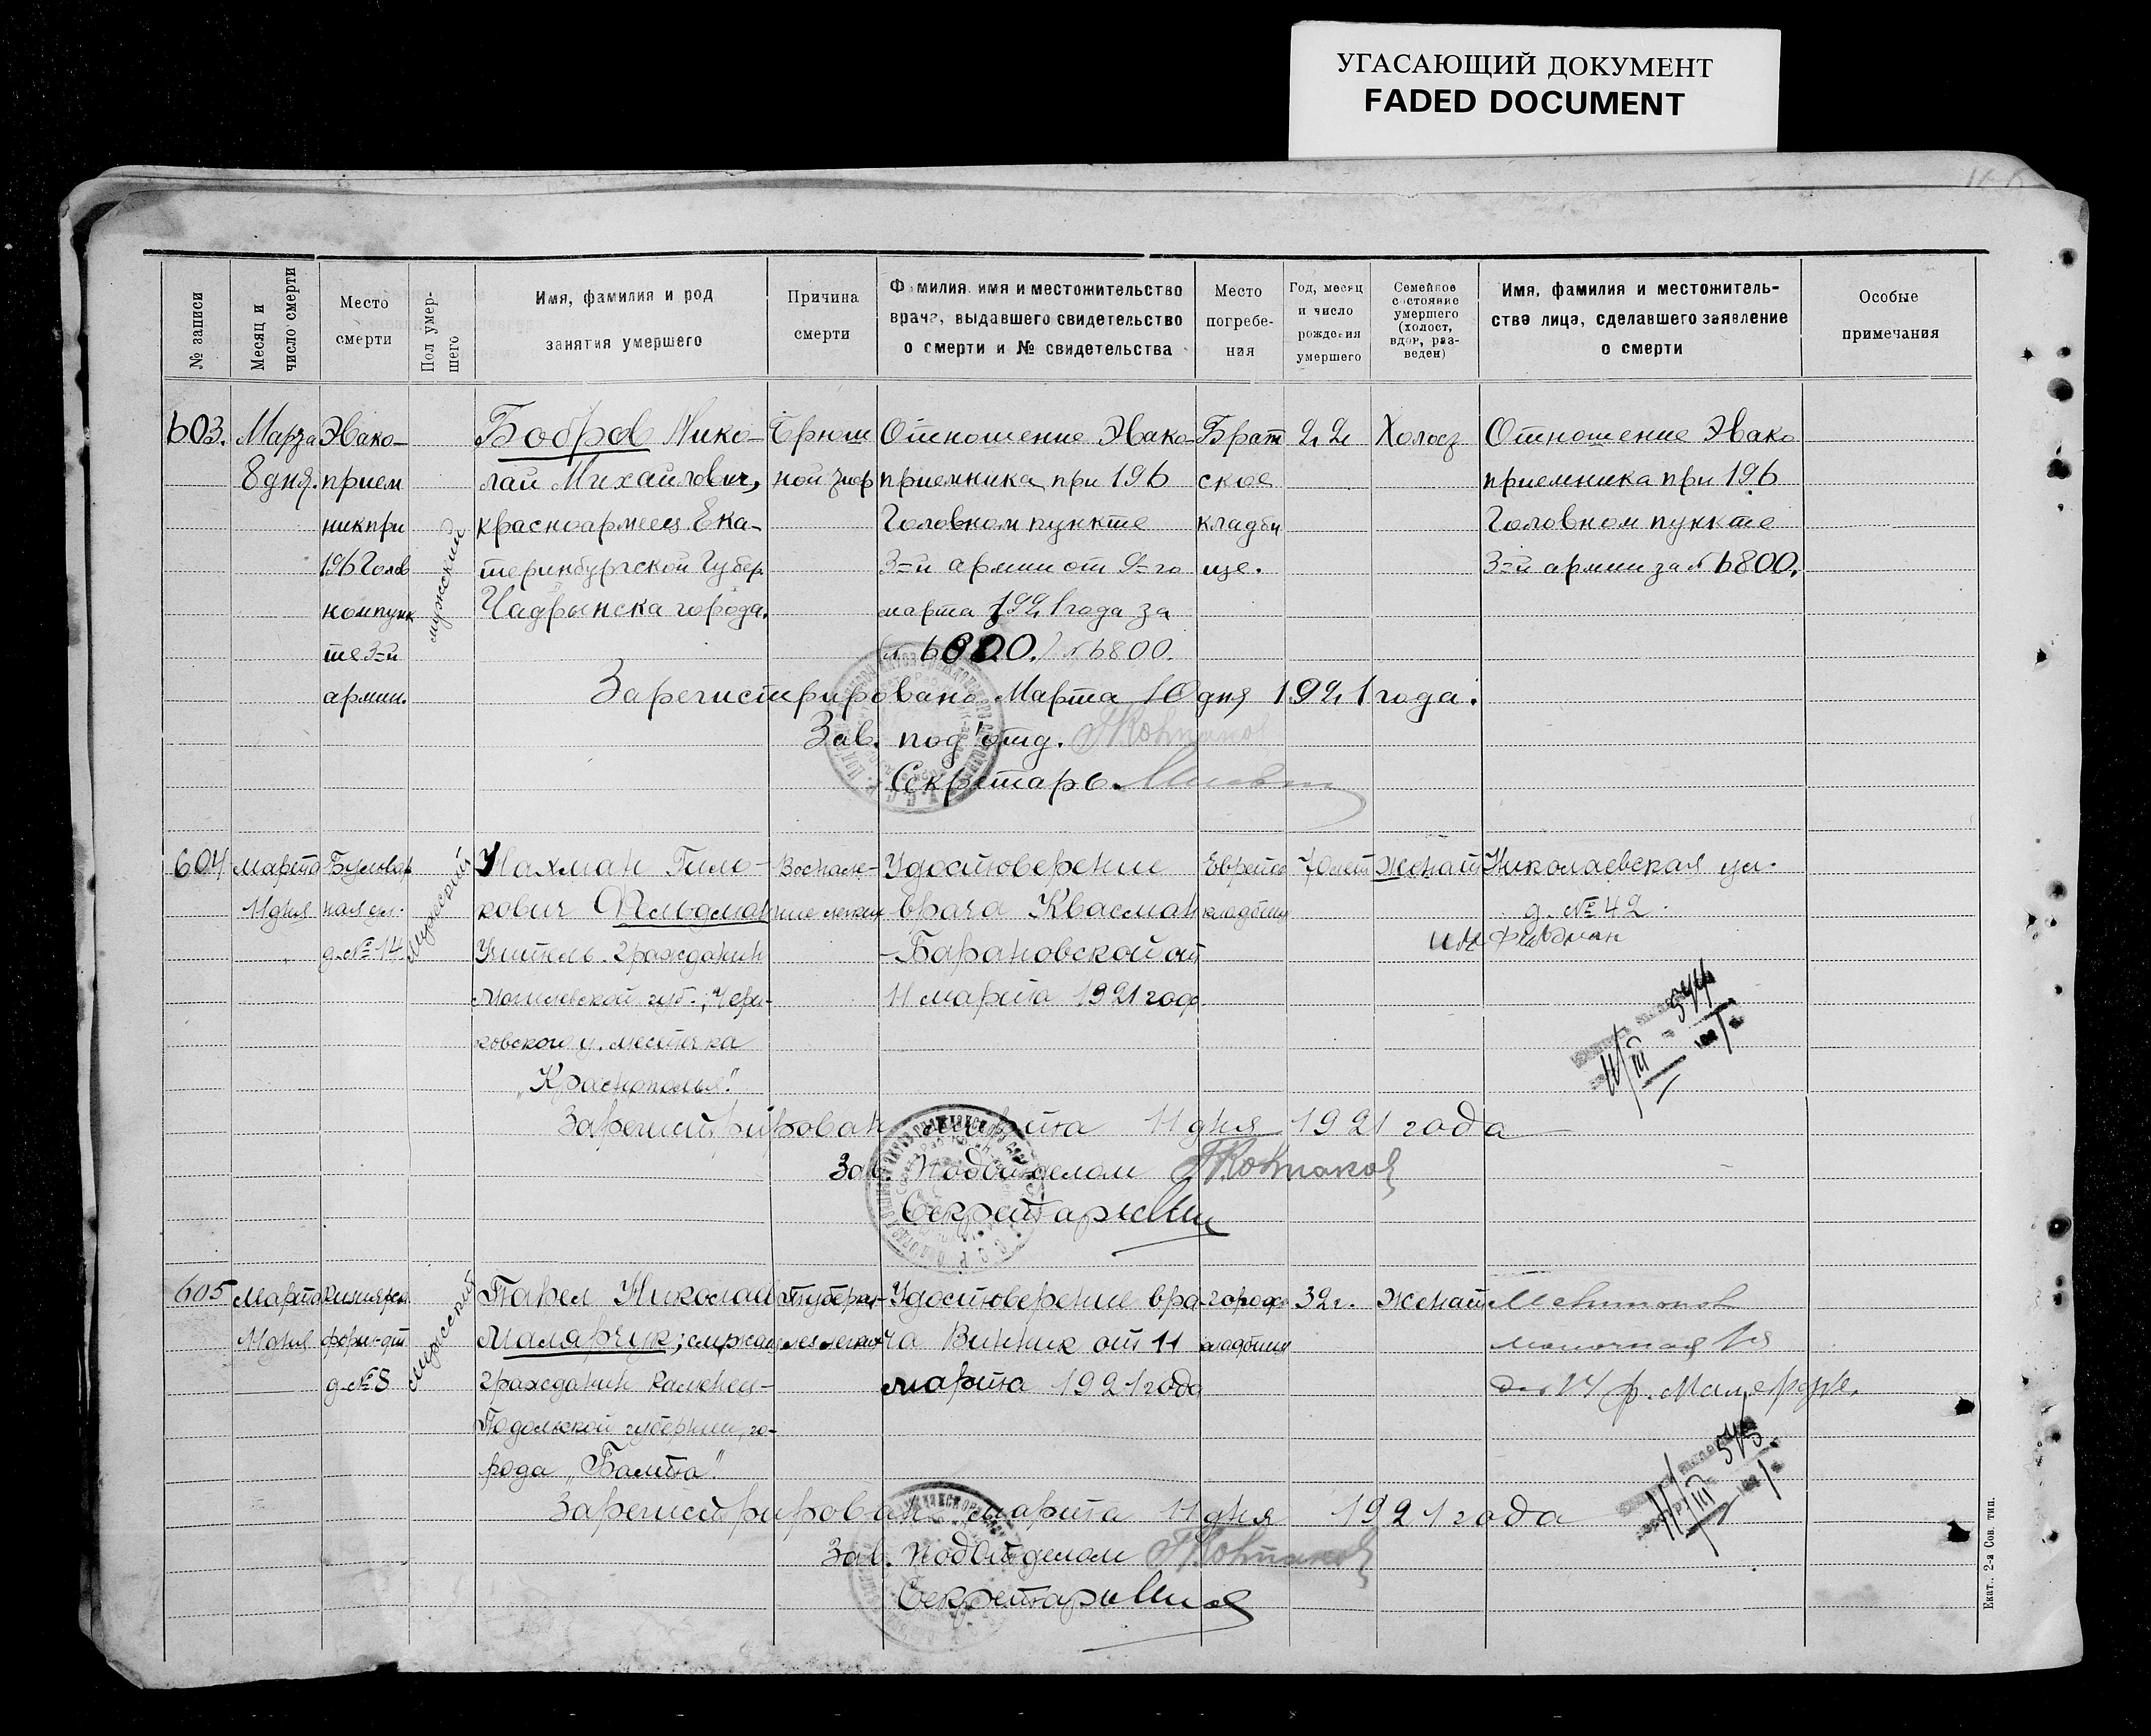 УГАСАЮЩИЙ ДОКУМЕНТ
FADED DOCUMENT
№ записи
Месяц и
число смерти
Место
смерти
Пол умер-
шего
Имя, фамилия и род
занятия умершего
Причина
смерти
Фамилия имя и местожительство
врача, выдавшего свидетельство
о смерти и № свидетельства
Место
погребе-
ния
Год, месяц
и число
рождения
умершего
Семейное
состояние
умершего
(холост,
вдов, раз-
веден)
Имя, фамилия и местожитель-
ства лица, сделавшего заявление
о смерти
Особые
примечания
603.
Марта
8 дня.
Эвако-
прием
ник при
196 Голов
ном пунк
те 3=й
армии.
мужский
Бобров Нико-
лай Михайлович,
красноармеец Ека-
теринбургской Губер
Чадрынска города.
Брюш
ной тиф
Отношение Эвако-
приемника при 196
Головном пункте
3=й армии от 9=го
марта 1921 года за
№ 6800.
Брат
ское
кладби
ще.
22
Холост
Отношение Эвако
приемника при 196
Головном пункте
3=й армии за № 6800.
Зарегистрировано Марта 10 дня 1921 года.
Зав. под'отд.
Секретарь.
604
марта
11 дня
Бульвар
ная ул.
д. № 14
мужский
Нахман Гиль-
кович Фельдман
Учитель. Гражданин
Могилевской губ., Чери-
ковского у. местечка
„Краснополья".
Воспале-
ние легких
Удостоверение
врача Квасман
-Барановской от
11 марта 1921 года
Еврейск
кладбище
70 лет
Женат
Николаевская ул.
д. № 42.
Фельдман
11/III
Зарегистрирован марта 11 дня 1921 года
Зав. Подотделом
Секретарь
605
Марта
11 дня
д. № 8
мужский
Павел Николай
Малярчук, служащ
гражданин Каменец-
Подольской губернии, го-
рода „Балта".
Туберку-
лез легких
Удостоверение вра-
ча Винник от 11
марта 1921 года
городск
кладбище
32 г.
Женат
11/III
Зарегистрирован марта 11 дня 1921 года
Зав. Подотделом
Секретарь
Екат., 2-я Сов. тип.